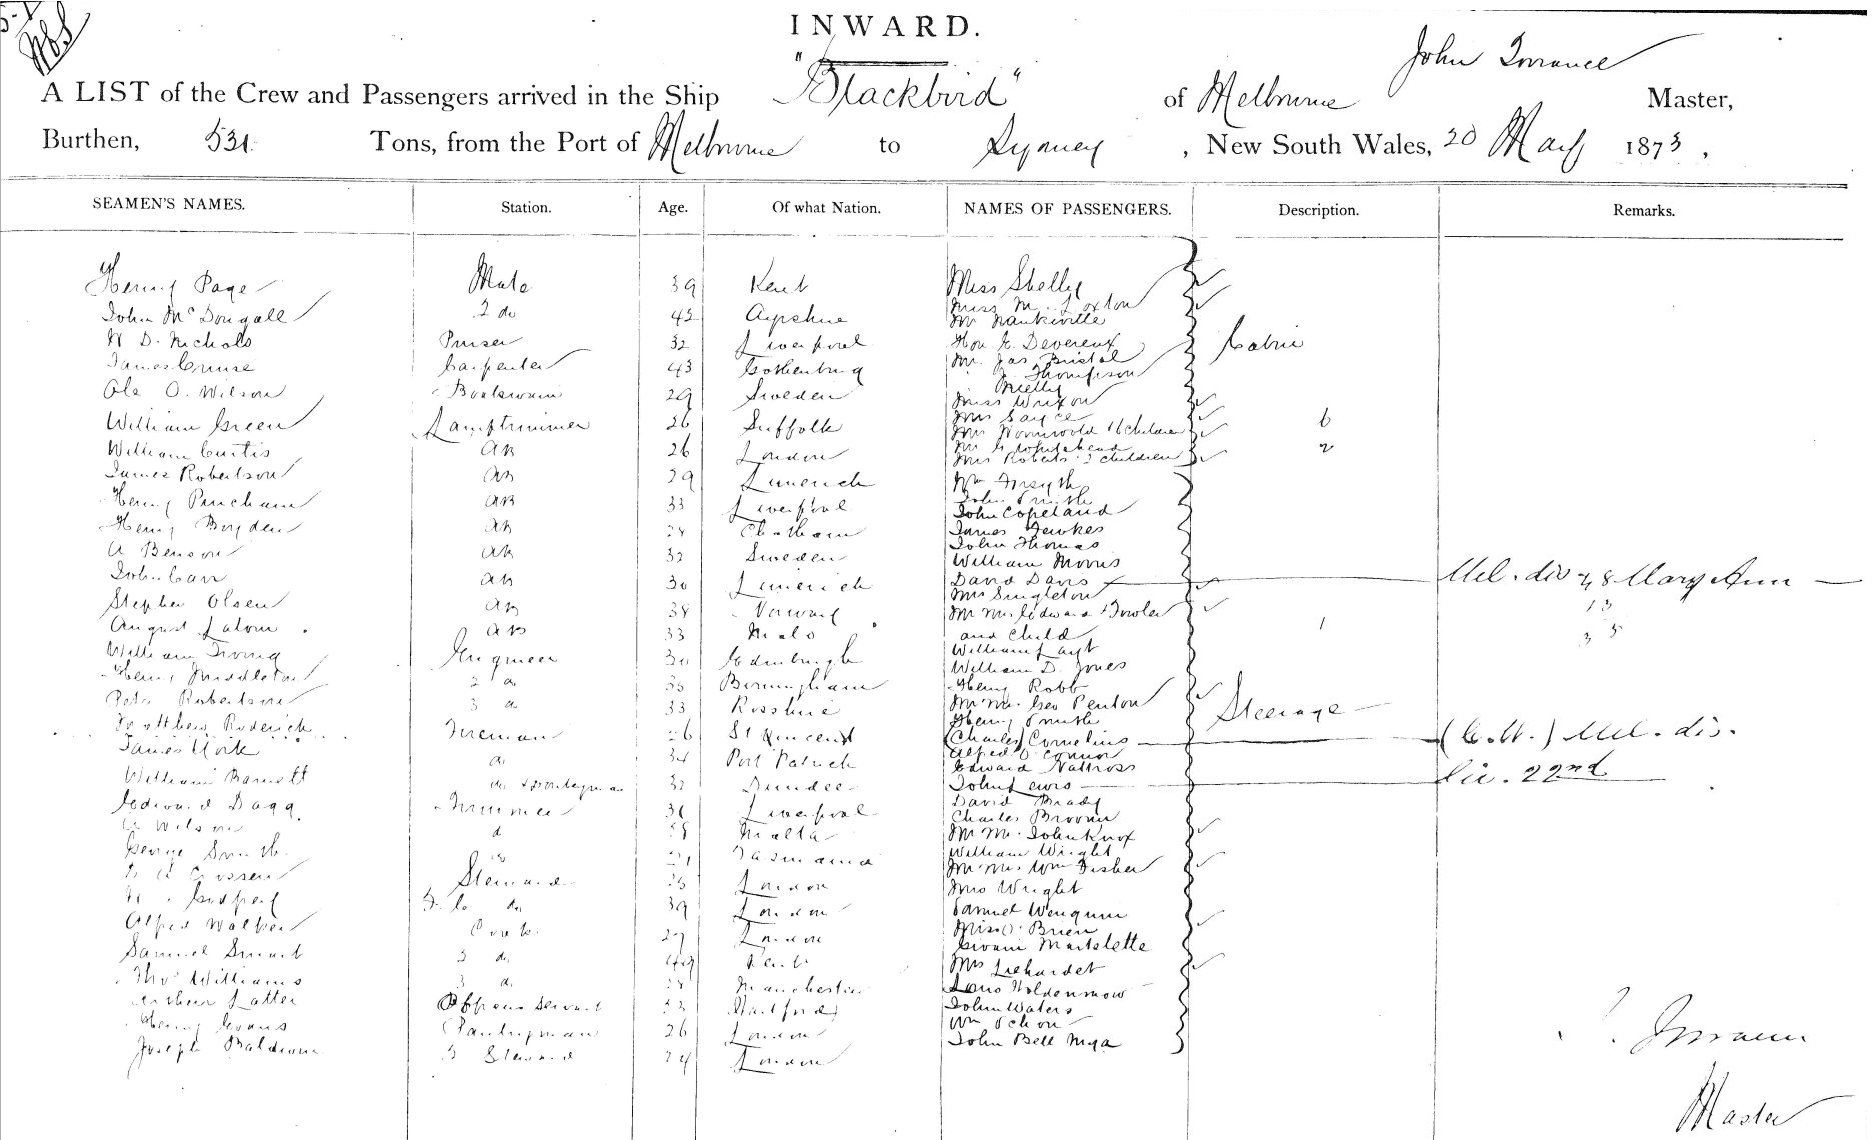 INWARD.
John Torrance
A LIST of the Crew and Passengers arrived in the Ship "Blackbird" of Melbourne Master,
Burthen, 531 Tons, from the Port of Melbourne to Sydney, New South Wales, 20 May 1873,
SEAMEN'S NAMES. Station. Age. Of what Nation. NAMES OF PASSENGERS. Description. Remarks.
Henry Page Mate 39 Kent Miss Shelly
John McDougall 2 do 42 Ayrshire Miss M. Loxton
Mr Nankiville
W D. Nichols Purser 32 Liverpool Hon E Devereux Cabin
James Cruise Carpenter 43 Gothenburg Mr Jas Bristol
Thompson
Ole O. Wilson Boatswain 29 Sweden Mielly
Miss Wrixon
William Green Lamptrimmer 26 Suffolk Mrs Sayce
Mrs Wormwold 6 Children 6
William Curtis AB 26 London Mr G Whitehead
Mrs Roberts 2 children 2
James Robertson AB 29 Limerick Wm Forsyth
Henry Pincham AB 33 Liverpool John Smith
John Copeland
Henry Boyden AB 28 Chatham James Fewkes
John Thomas
A Benson AB 32 Sweden William Morris
John Carr AB 30 Limerick David Davis Mel. div 48 Mary Ann
Mrs Singleton 13
Stephen Olsen AB 38 Norway Mr Mrs Edward Fowler
August Latour AB 33 Malo and Child 1 35
William Irving Engineer 30 Edinburgh William Layt
William D. Jones
Henry Middleton 2 do 35 Birmingham Henry Robb
Peter Robertson 3 do 33 Rosshire Mr Mrs. Geo Penton Steerage
Henry Smith
Matthew Roderick Fireman 26 St Vincent (Charles) Cornelius (C.H.) Mel. div.
James York do 34 Port Patrick Alfred O'Connor
Edward Nattross
William Barnett do 32 Dundee John Lewis 22nd
Edward Dagg Trimmer 31 Liverpool David Brady
Charles Broom
A Wilson do 28 Malta Mr Mrs. John Knox
George Smith do 21 Tasmania William Wright
Mr Mrs. Wm Fisher
Crossen Steward 25 London Mrs Wright
Godfrey do 39 London Samuel Wenquin
Alfred Walker Cook 27 London Miss O'Brien
Giovani Martelette
Samuel Smart 2 do 49 Kent Mrs Liehardet
Thos Williams 3 do 28 Manchester Louis Holdenmow
Arthur Latter Officers Servant 23 Hartford John Waters
Henry Evans Pantryman 26 London Wm Schon
Joseph Baldwin 3 Steward 24 London John Bell Mya
J. Torrance
Master